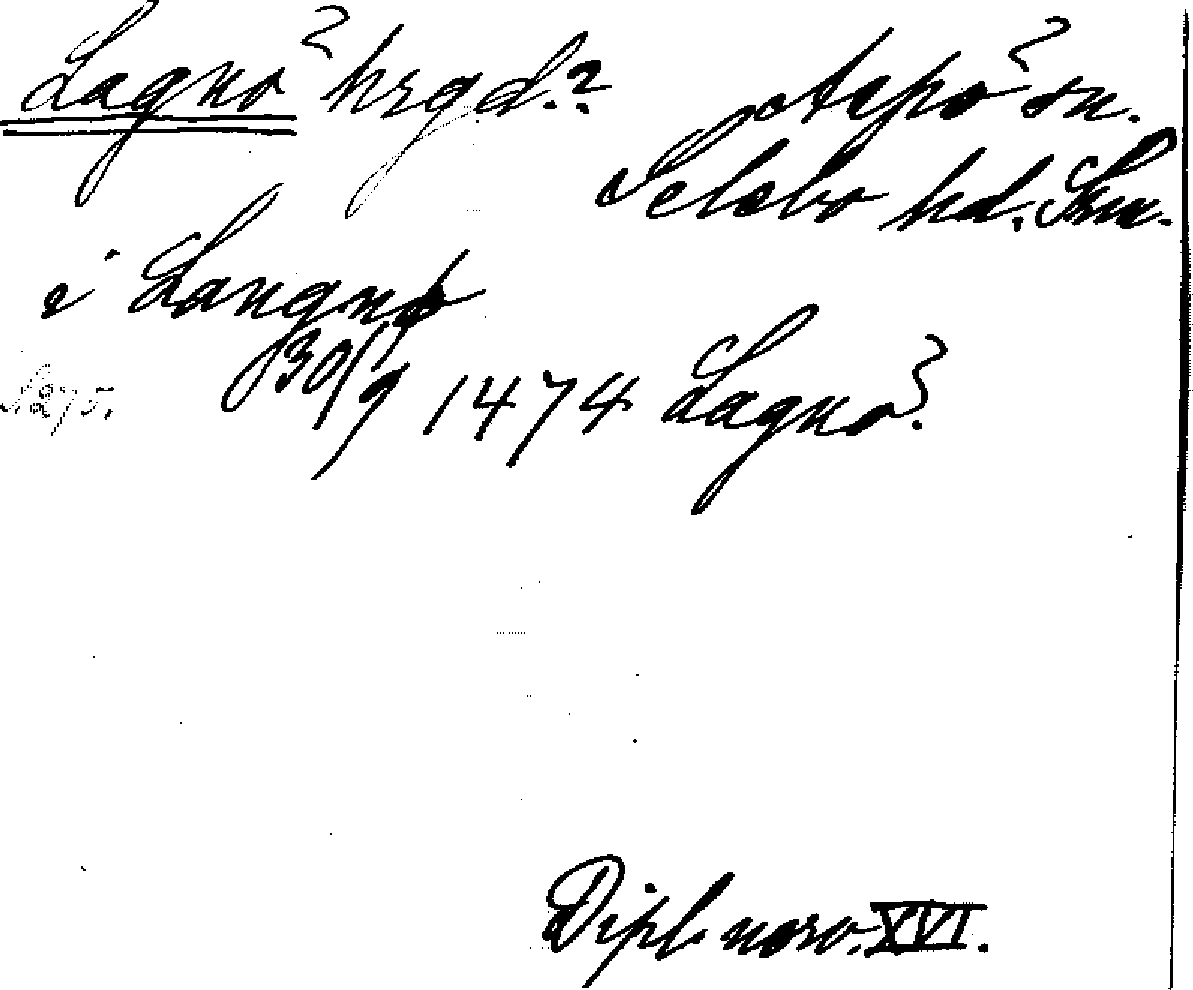 Lagnö hrgd.? Aspö sn.
Selebo hd. Srm.
i Langnø
S. 275. 30/9 1474 Lagnö.
Dipl. norv. XVI.